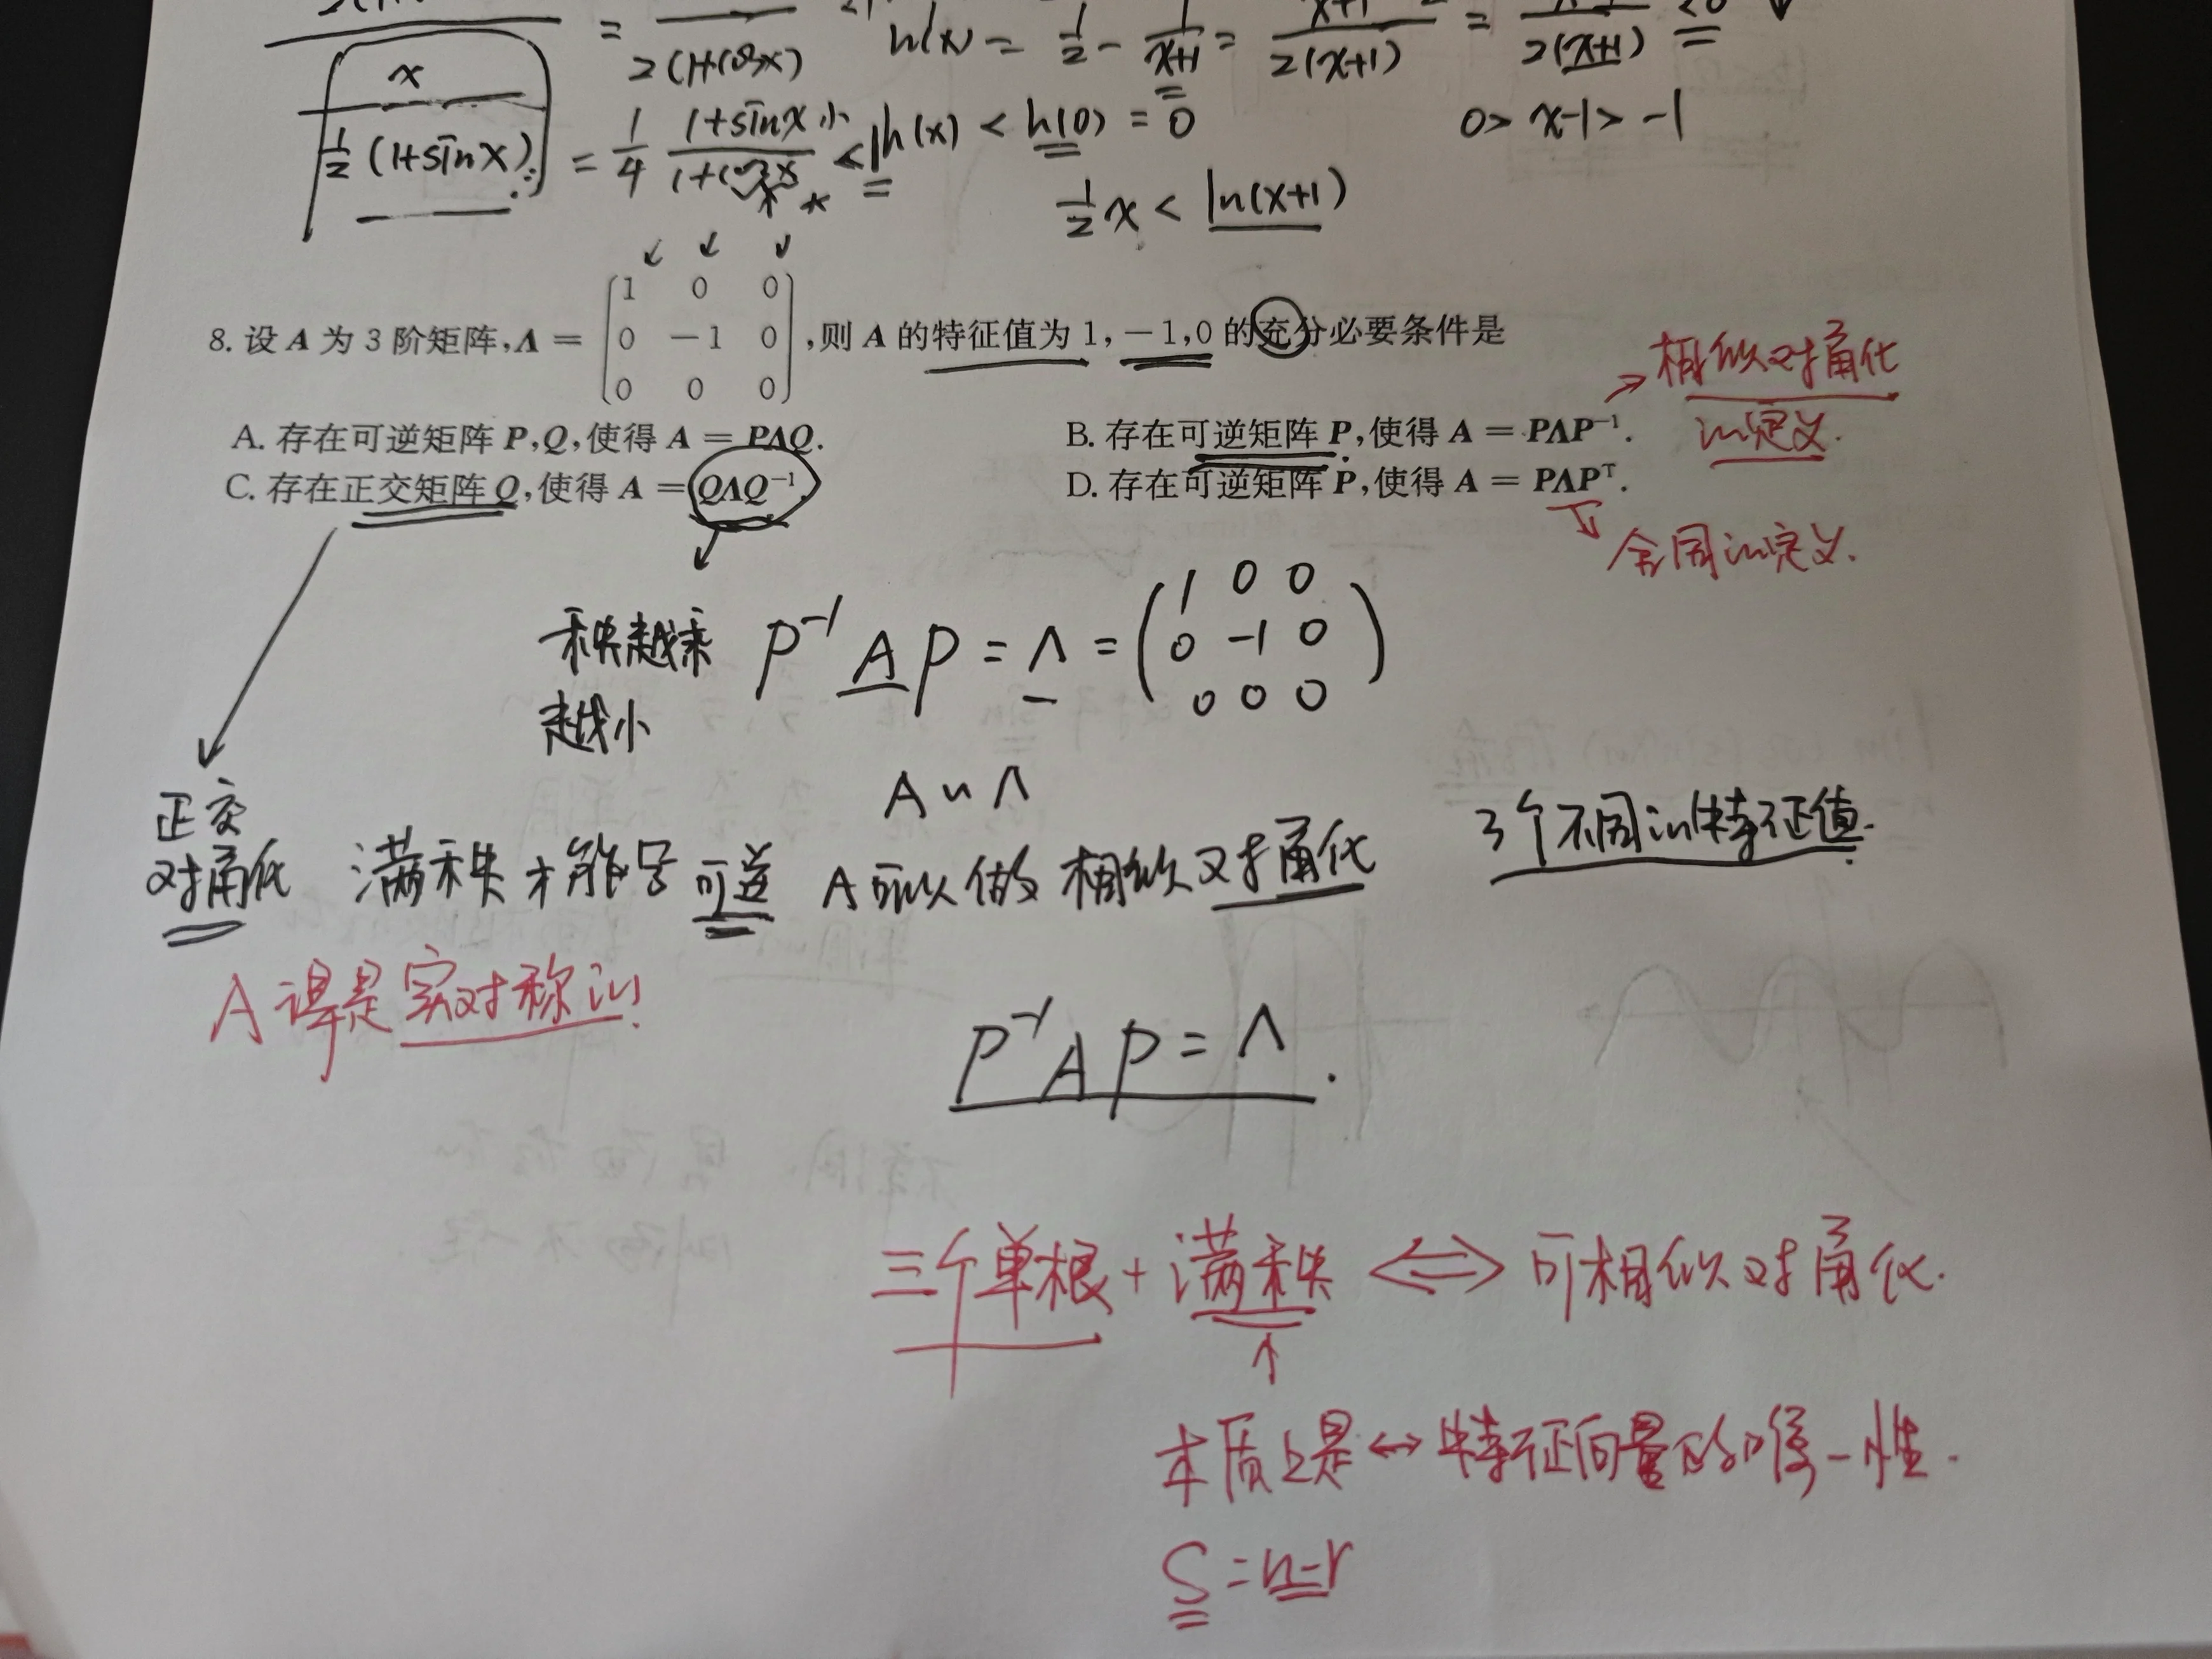 = 2(1+cosx) h'(x) = 1/2 - 1/(x+1) = 2(x+1) = 2(x+1) <0 ↓
x
1/2 (1+sinx) = 1/4 (1+sinx)/(1+cosx) < h(x) < h(0) = 0
0> x-1> -1
1/2 x < ln(x+1)
8. 设 A 为 3 阶矩阵,Λ = [1 0 0
0 -1 0
0 0 0] ,则 A 的特征值为 1, -1,0 的充分必要条件是
A. 存在可逆矩阵 P,Q,使得 A = PΛQ.
B. 存在可逆矩阵 P,使得 A = PΛP⁻¹.
C. 存在正交矩阵 Q,使得 A = QΛQ⁻¹.
D. 存在可逆矩阵 P,使得 A = PΛPᵀ.
→ 相似对角化
的定义.
合同的定义.
秩越乘
越小
P⁻¹AP = Λ = (1 0 0
0 -1 0
0 0 0)
A ∽ Λ
正交
对角化
满秩才能号可逆
A可以做相似对角化
3个不同的特征值.
A 得是实对称的!
P⁻¹AP = Λ.
三个单根 + 满秩 ⟺ 可相似对角化.
↑
本质上是 ↔ 特征向量的唯一性.
S = n-r